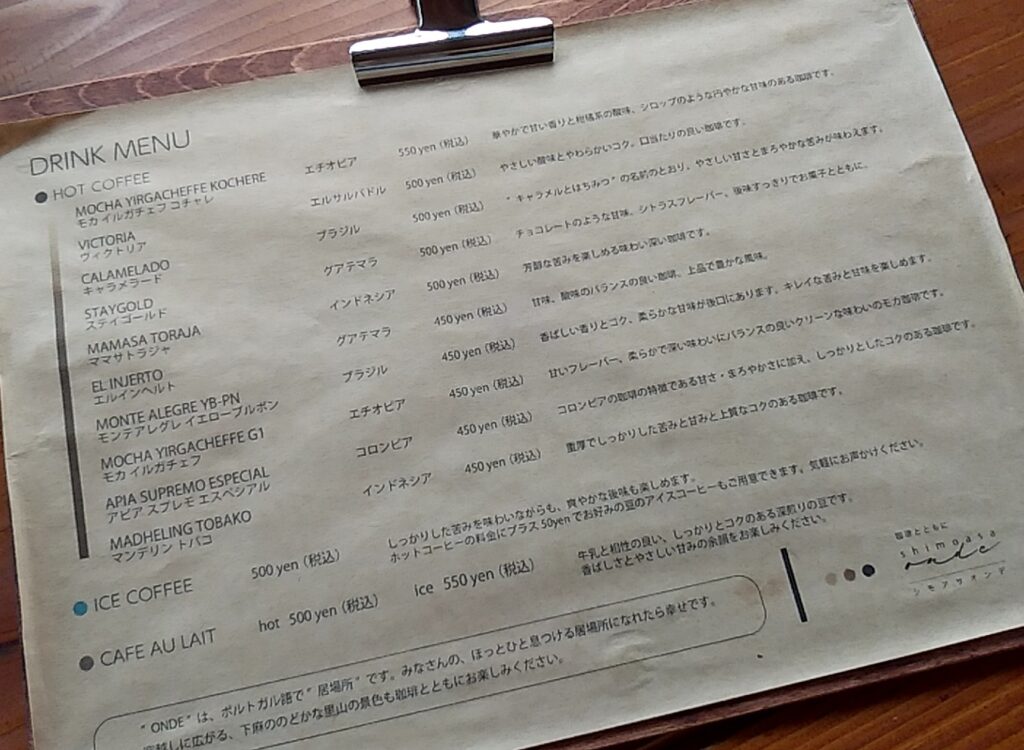 DRINK MENU
HOT COFFEE
MOCHA YIRGACHEFFE KOCHERE エチオピア 550 yen (税込) 華やかで甘い香りと柑橘系の酸味、シロップのような円やかな甘味のある珈琲です。
モカ イルガチェフ コチャレ
VICTORIA エルサルバドル 500 yen (税込) やさしい酸味とやわらかいコク。口当たりの良い珈琲です。
ヴィクトリア
CALAMELADO ブラジル 500 yen (税込) "キャラメルとはちみつ"の名前のとおり、やさしい甘さとまろやかな苦みが味わえます。
キャラメラード
STAYGOLD グアテマラ 500 yen (税込) チョコレートのような甘味、シトラスフレーバー、後味すっきりでお菓子とともに。
ステイゴールド
MAMASA TORAJA インドネシア 500 yen (税込) 芳醇な苦みを楽しめる味わい深い珈琲です。
ママサトラジャ
EL INJERTO グアテマラ 450 yen (税込) 甘味、酸味のバランスの良い珈琲、上品で豊かな風味。
エルインヘルト
MONTE ALEGRE YB-PN ブラジル 450 yen (税込) 香ばしい香りとコク、柔らかな甘味が後口にあります。キレイな苦みと甘味を楽しめます。
モンテアレグレ イエローブルボン
MOCHA YIRGACHEFFE G1 エチオピア 450 yen (税込) 甘いフレーバー、柔らかで深い味わいにバランスの良いクリーンな味わいのモカ珈琲です。
モカ イルガチェフ
APIA SUPREMO ESPECIAL コロンビア 450 yen (税込) コロンビアの珈琲の特徴である甘さ・まろやかさに加え、しっかりとしたコクのある珈琲です。
アピア スプレモ エスペシアル
MADHELING TOBAKO インドネシア 450 yen (税込) 重厚でしっかりした苦みと甘みと上質なコクのある珈琲です。
マンデリン トバコ
ICE COFFEE 500 yen (税込) しっかりした苦みを味わいながらも、爽やかな後味も楽しめます。
ホットコーヒーの料金にプラス 50yen でお好みの豆のアイスコーヒーもご用意できます。気軽にお声かけください。
CAFE AU LAIT hot 500 yen (税込) ice 550 yen (税込) 牛乳と相性の良い、しっかりとコクのある深煎りの豆です。
香ばしさとやさしい甘みの余韻をお楽しみください。
珈琲とともに
shimoasa
onde
シモアサオンデ
"ONDE"は、ポルトガル語で"居場所"です。みなさんの、ほっとひと息つける居場所になれたら幸せです。
越しに広がる、下麻ののどかな里山の景色も珈琲とともにお楽しみください。